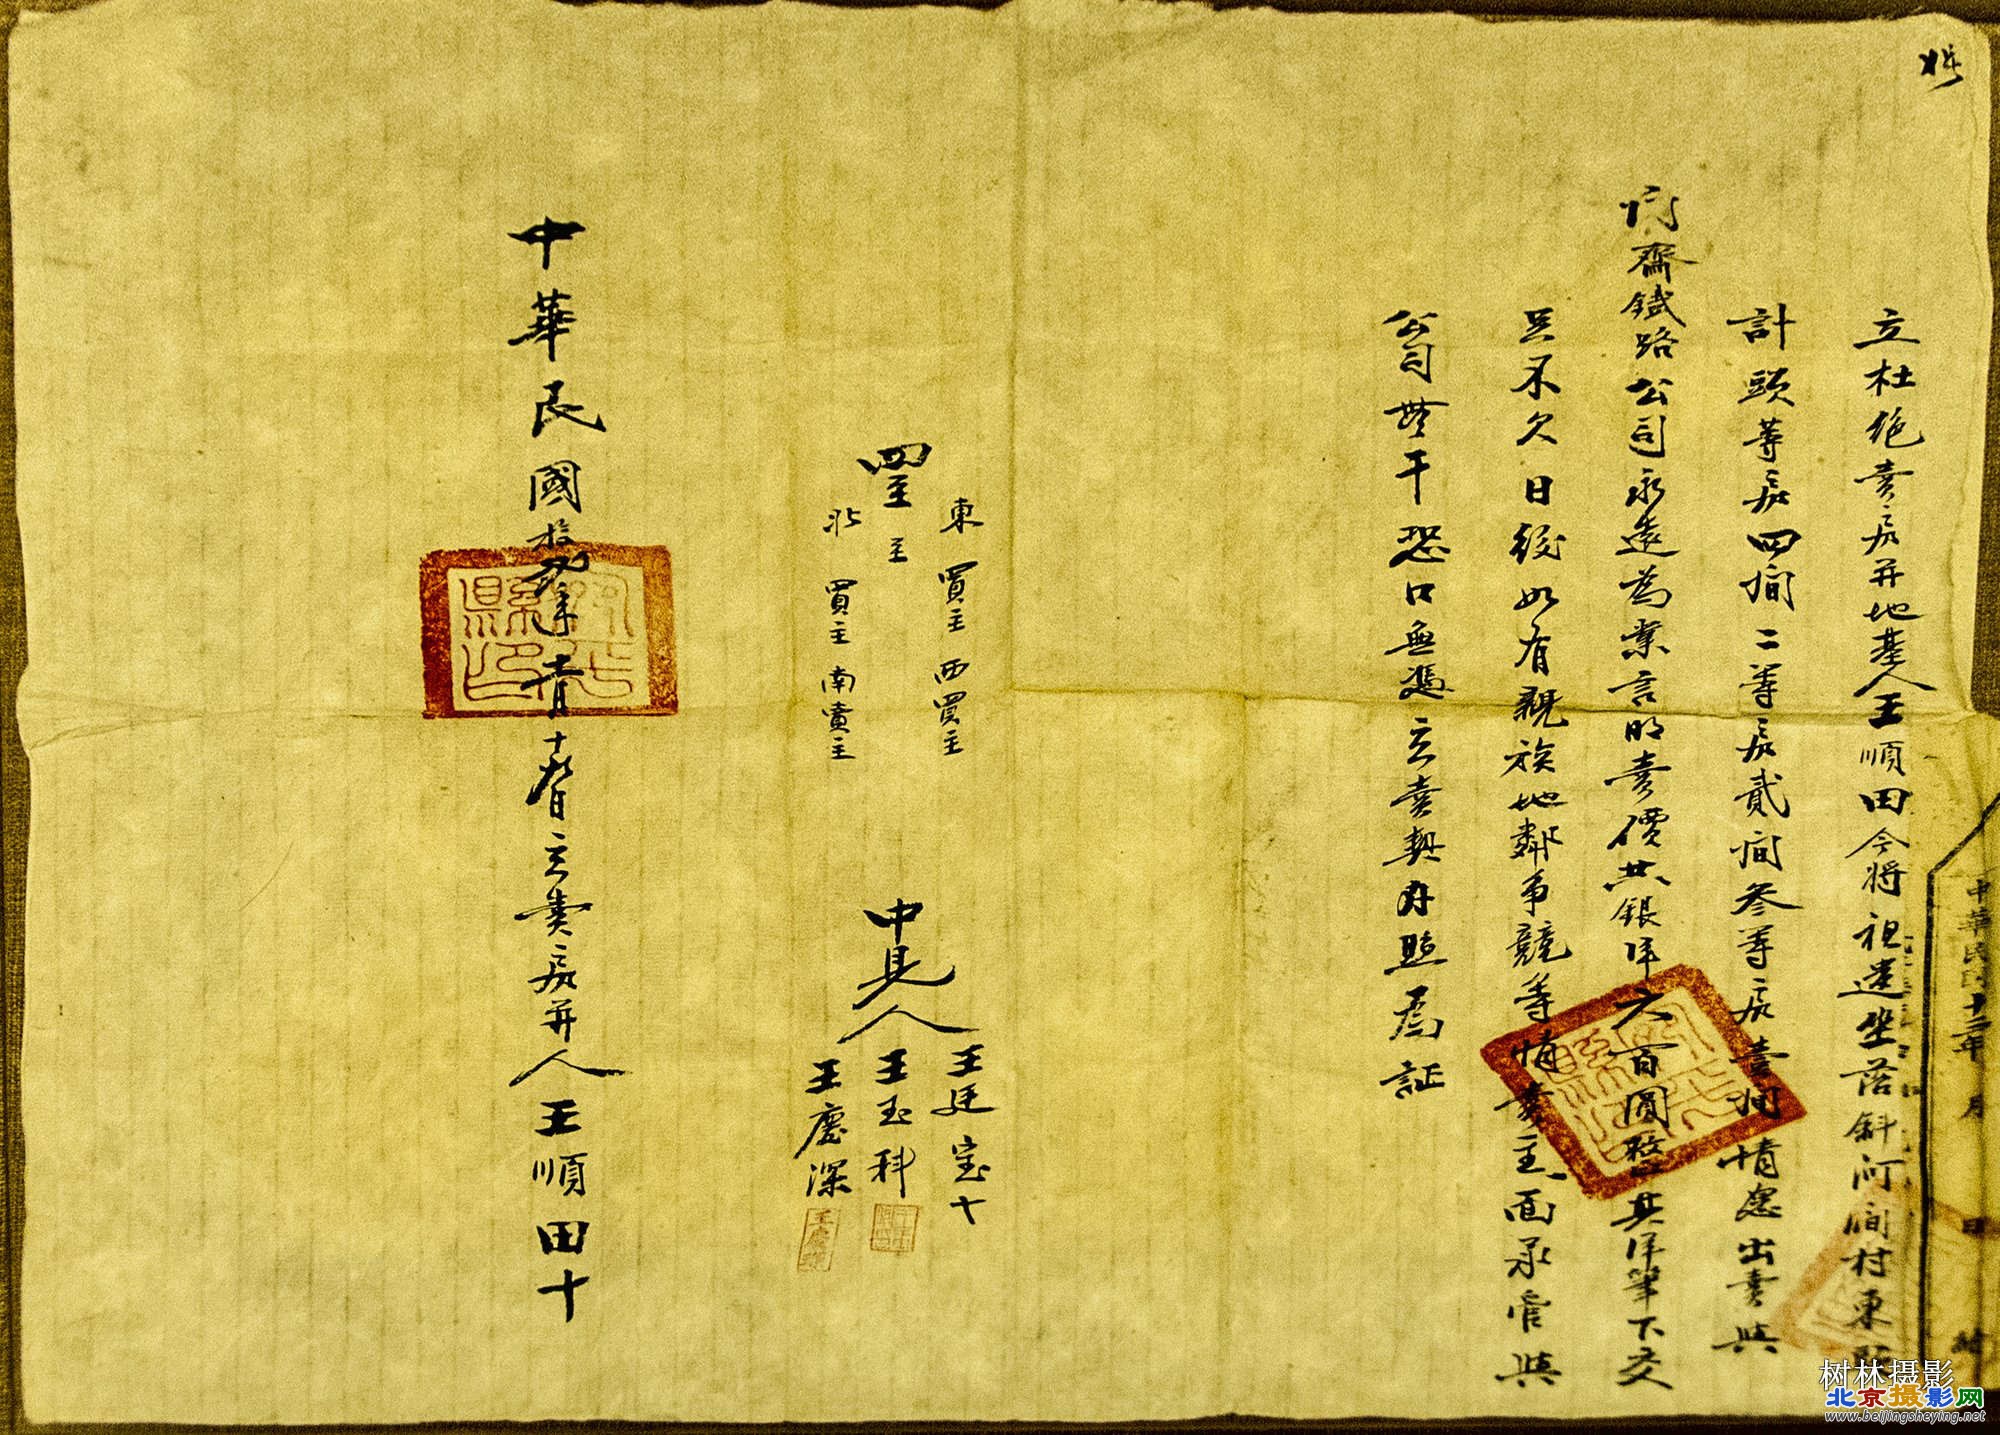 立杜絶賣房并地基人王順田今將祖遺坐落斜河澗村東
計頭等房四間二等房貳間叁等房壹間情愿出賣與
門齋鐵路公司永遠為業言明賣價共銀洋六百圓整其洋筆下交
足不欠日後如有親族地鄰爭競等情賣主一面承管與
公司無干恐口無憑立賣契存照為証
東買主西買主
四至
至
北買主南賣主
中見人
王廷宝十
王玉科
王慶深
中華民國拾年月日立賣房并人王順田十
宛平縣印
中華民國十三年 月 日
树林摄影
北京摄影网
www.beijingsheying.net